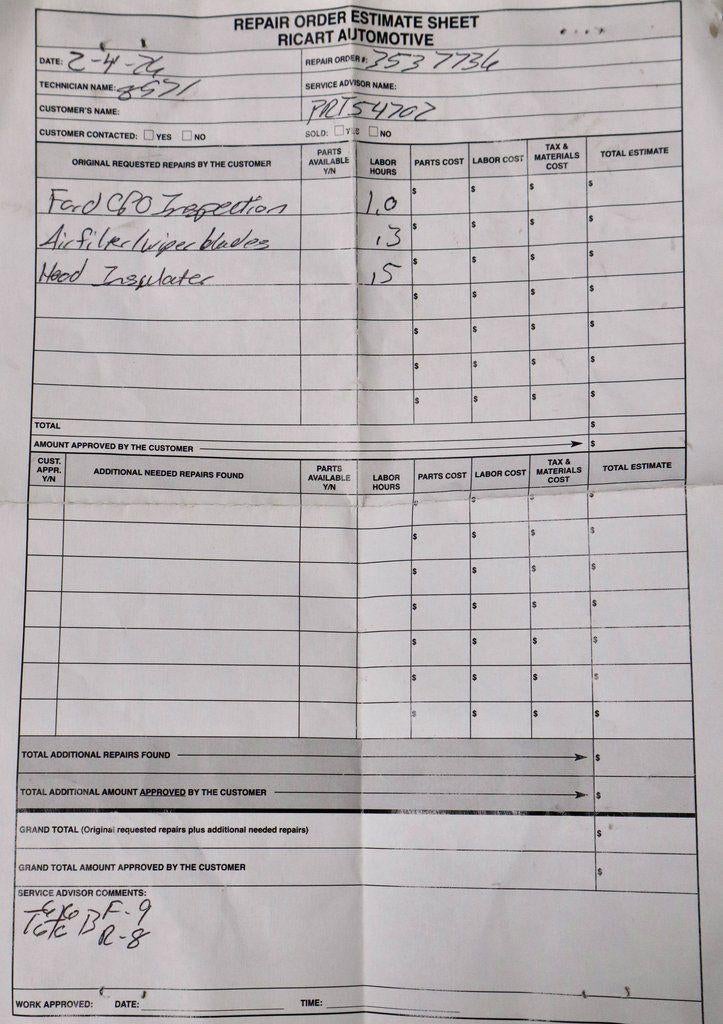 REPAIR ORDER ESTIMATE SHEET
RICART AUTOMOTIVE
DATE: 2-4-26 REPAIR ORDER #: 3537736
TECHNICIAN NAME: 8571 SERVICE ADVISOR NAME:
CUSTOMER'S NAME: PRT54702
CUSTOMER CONTACTED: YES NO SOLD: YES NO
ORIGINAL REQUESTED REPAIRS BY THE CUSTOMER PARTS AVAILABLE Y/N LABOR HOURS PARTS COST LABOR COST TAX & MATERIALS COST TOTAL ESTIMATE
Ford CPO Inspection 1.0 $ $ $ $
Air filter/wiper blades .3 $ $ $ $
Hood Insulater .5 $ $ $ $
$ $ $ $
$ $ $ $
$ $ $ $
$ $ $ $
TOTAL $
AMOUNT APPROVED BY THE CUSTOMER $
CUST. APPR. Y/N ADDITIONAL NEEDED REPAIRS FOUND PARTS AVAILABLE Y/N LABOR HOURS PARTS COST LABOR COST TAX & MATERIALS COST TOTAL ESTIMATE
$ $ $ $
$ $ $ $
$ $ $ $
$ $ $ $
$ $ $ $
$ $ $ $
$ $ $ $
TOTAL ADDITIONAL REPAIRS FOUND $
TOTAL ADDITIONAL AMOUNT APPROVED BY THE CUSTOMER $
GRAND TOTAL (Original requested repairs plus additional needed repairs) $
GRAND TOTAL AMOUNT APPROVED BY THE CUSTOMER $
SERVICE ADVISOR COMMENTS:
T 6/6 B F-9
6/6 R-8
WORK APPROVED: DATE: TIME: